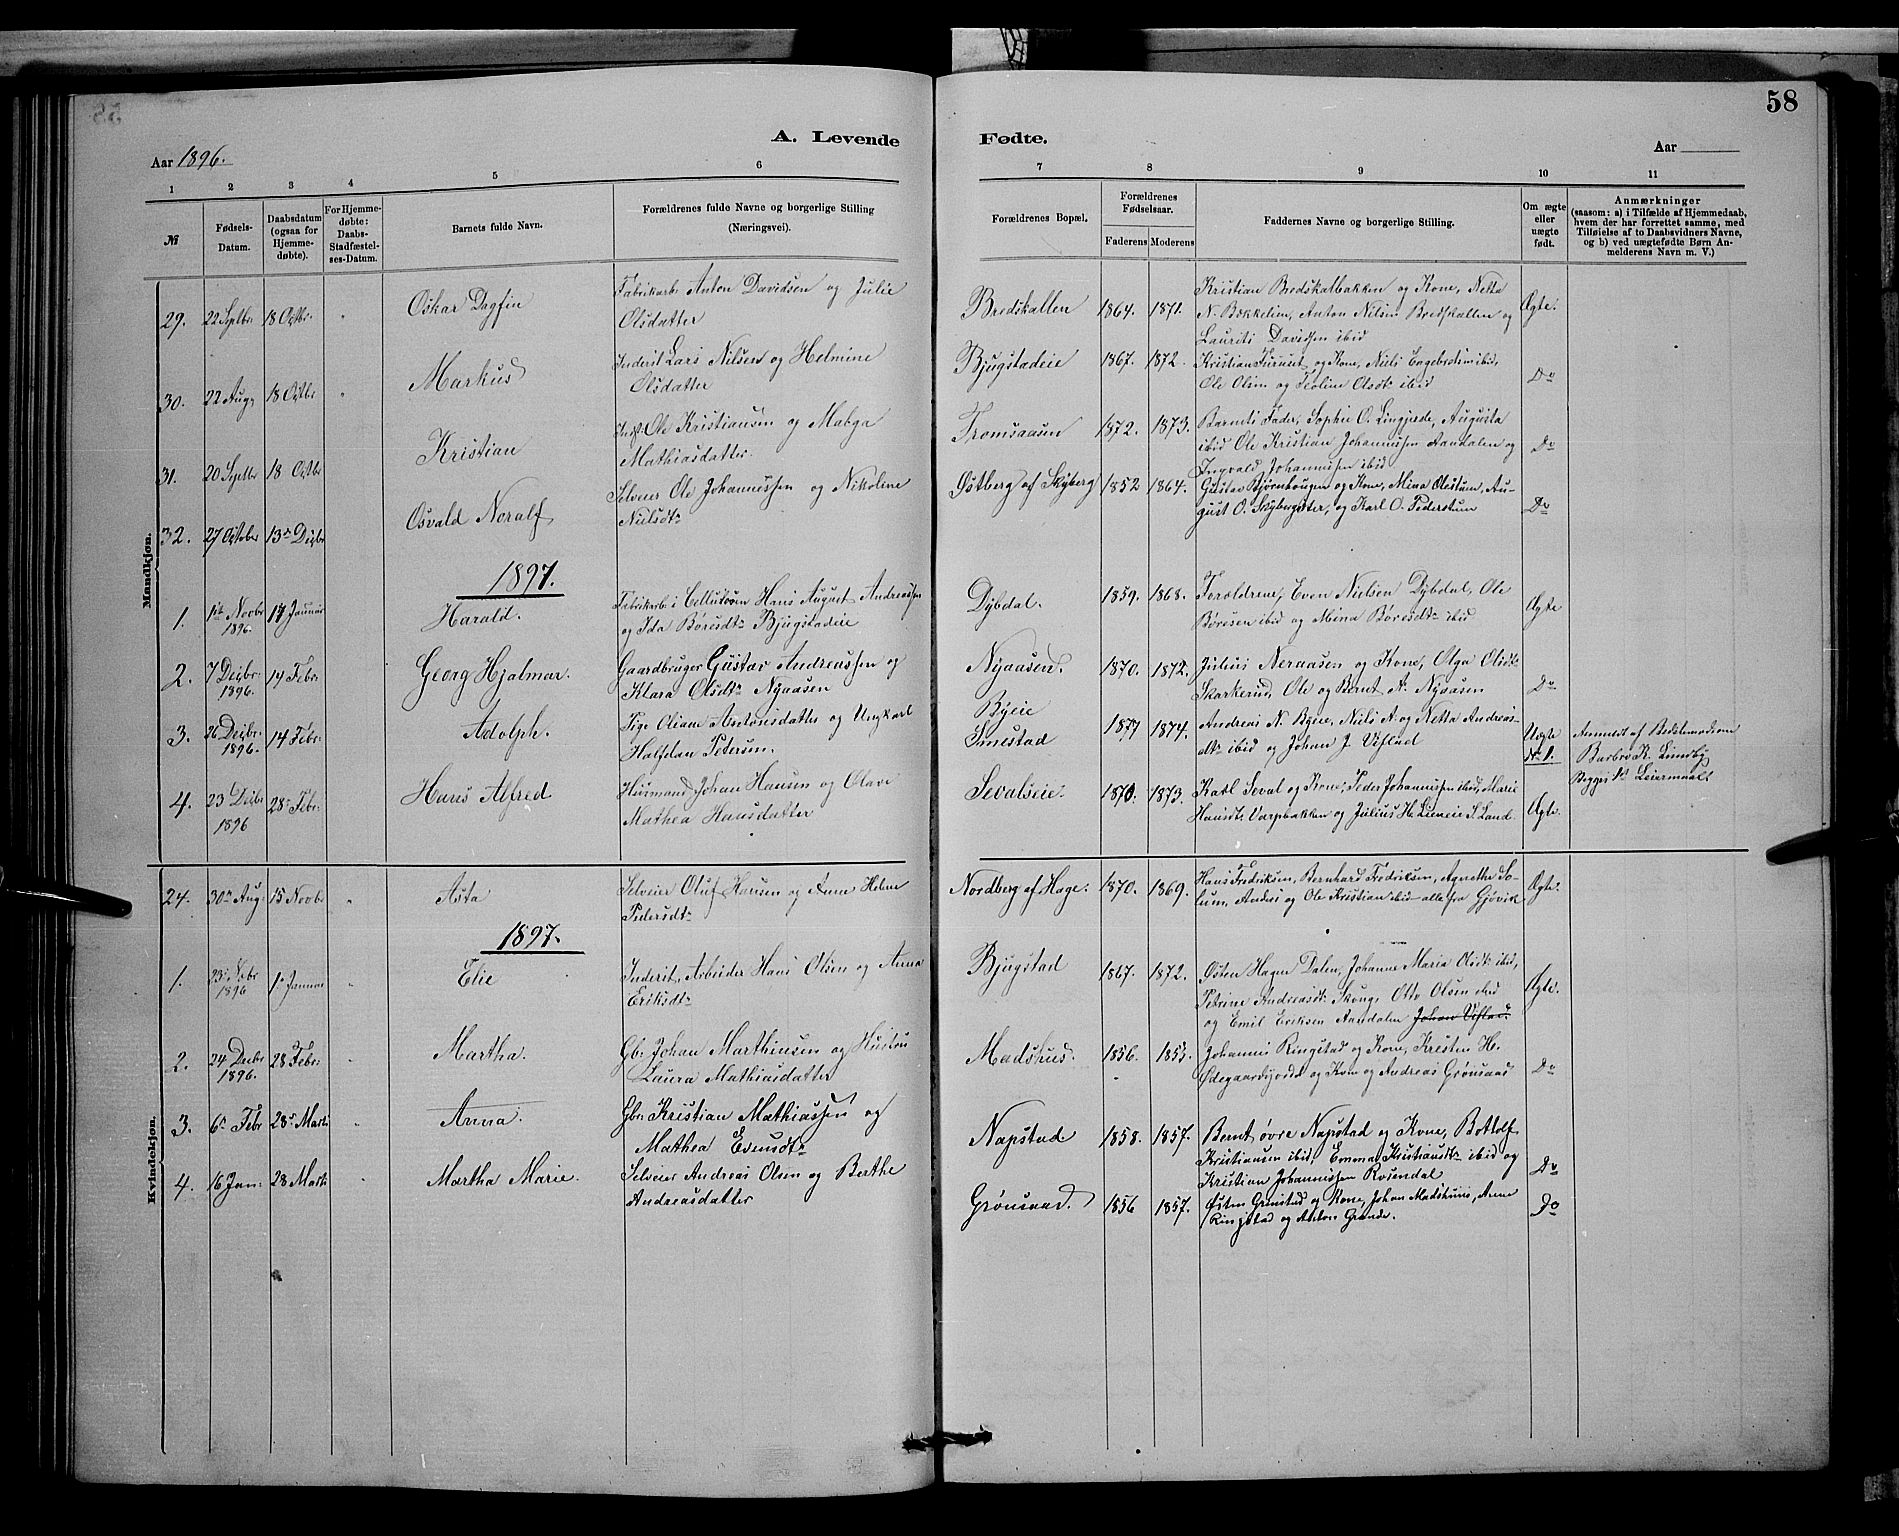 58
A. Levende Fødte.
Aar 1896. Aar
1 2 3 4 5 6 7 8 9 10 11
№ Fødsels-Datum. Daabsdatum (ogsaa for Hjemme-døbte). For Hjemme-døbte: Daabs-Stadfæstel-ses-Datum. Barnets fulde Navn. Forældrenes fulde Navne og borgerlige Stilling (Næringsvei). Forældrenes Bopæl. Forældrenes Fødselsaar. Faderens Moderens Faddernes Navne og borgerlige Stilling. Om ægte eller uægte født. Anmærkninger (saasom: a) i Tilfælde af Hjemmedaab, hvem der har forrettet samme, med Tilføielse af to Daabsvidners Navne, og b) ved uægtefødte Børn Anmelderens Navn m. V.)
Mandkjøn.
29. 22 Septbr 18 Octbr. " Oskar Dagfin Fabrikarb. Anton Davidsen og Julie Olsdatter Bredskallen 1864. 1871. Kristian Bredskalbakken og Kone, Netta
N. Bækkelien, Anton Nilsen Bredskallen og Ægte.
Lauritz Davidsen ibid
30. 22 Aug 18 Octbr " Markus Inderst Lars Nilsen og Helmine Olsdatter Bjugstadeie 1867. 1872. Kristian Furuset og Kone, Niels Engebretsen ibid,
Ole Olsen og Teoline Olsdtr ibid Do
31. 20 Septbr 18 Octbr Kristian Inds. Ole Kristiansen og Mabga Mathiasdatter. Tromsaasen 1872. 1873. Barnets Fader, Sophie O. Lingjerde, Augusta
ibid Ole Kristian Johannessen Aandalen og Do
Ingvald Johannessen ibid
32. 27 October 13de Decbr Osvald Noralf Selveier Ole Johannessen og Nikoline Nielsdtr Østberg af Skyberg 1852 1864. Gustav Bjørnhaugen og Kone, Mina Olestuen, Au-
gust O. Skybergseter, og Karl O. Pederstuen Do
1897.
1. 1ste Novbr 1896. 17 Januar Harald. Fabrikarb i Cellulosen Hans August Andreassen
og Ida Børesdtr Bjugstadeie Dybdal. 1859. 1868. Forældrene, Even Nielsen Dybdal, Ole
Børesen ibid og Mina Børesdtr ibid Ægte
2. 7 Decbr 1896. 14 Febr. Georg Hjalmar. Gaardbruger Gustav Andreassen og
Klara Olsdtr Nyaasen Nyaasen. 1870. 1872. Julius Neraasen og Kone, Olga Olsdtr
Skarkerud, Ole og Bernt A. Nyaasen Do
3. 26 Decbr. 1896. 14 Febr. Adolph. Pige Oliane Antonsdatter og Ungkarl
Halfdan Petersen. Byeie Smestad 1877 1874. Andreas N. Byeie, Niels A. og Netta Andreas-
dtr ibid og Johan J. Vestad Uægte No 1. Anmeldt af Bedstemoderen
Barbro K. Lundby
Begges 1ste Leiermaal
4. 23 Decbr 1896 28de Febr. Hans Alfred Huusmand Johan Hansen og Olave
Mathea Hansdatter Sevalseie. 1870. 1873. Karl Seval og Kone, Peder Johannessen ibid, Marie
Hansdtr Varpbakken og Julius H. Lieneie S. Land. Ægte.
Kvindekjøn.
24. 30te Aug 15 Novbr " Asta Selveier Oluf Hansen og Anne Helene
Pedersdtr Nordberg af Hage. 1870. 1869. Hans Fredriksen, Bernhard Fredriksen, Agnethe So-
lum, Anders og Ole Kristian ibid alle fra Gjøvik Ægte.
1897.
1. 23 Nobr 1896 1 Januar " Elie Inderst, Arbeider Hans Olsen og Anna
Eriksdtr Bjugstad 1867. 1872. Østen Hagen Dalen, Johanne Maria Olsdtr ibid,
Petrine Andreasdtr Skonge Otto Olsen ibid Ægte.
og Emil Eriksen Aandalen Johan Vestad.
2. 24 Decbr 1896. 28 Febr. " Martha. Gbr. Johan Marthinsen og Hustru
Laura Mathiasdatter Madshus. 1856. 1853. Johannes Ringstad og Kone, Kresten H.
Ødegaardsjordet og Kone og Andreas Grønsaas Do
3. 6te Febr 28de Marts " Anna. Gbr. Kristian Mathiassen og
Mathea Evensdtr Napstad 1858. 1857. Bernt øvre Napstad og Kone, Bottolf
Kristiansen ibid, Emma Kristiansdtr ibid og
Kristian Johannessen Rosendal Do
4. 16 Jan: 28 Marts Martha Marie. Selveier Andreas Olsen og Berthe
Andreasdatter Grønsaas. 1856 1857. Østen Grimstad og Kone, Johan Madshuus, Anne
Ringstad og Anton Grande. Do